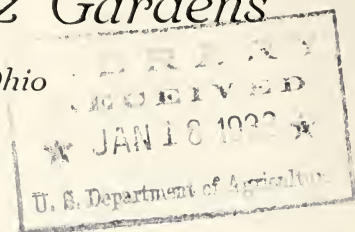 Gardens
Ohio
LIBRARY
RECEIVED
★ JAN 18 ★
U. S. Department of Agriculture